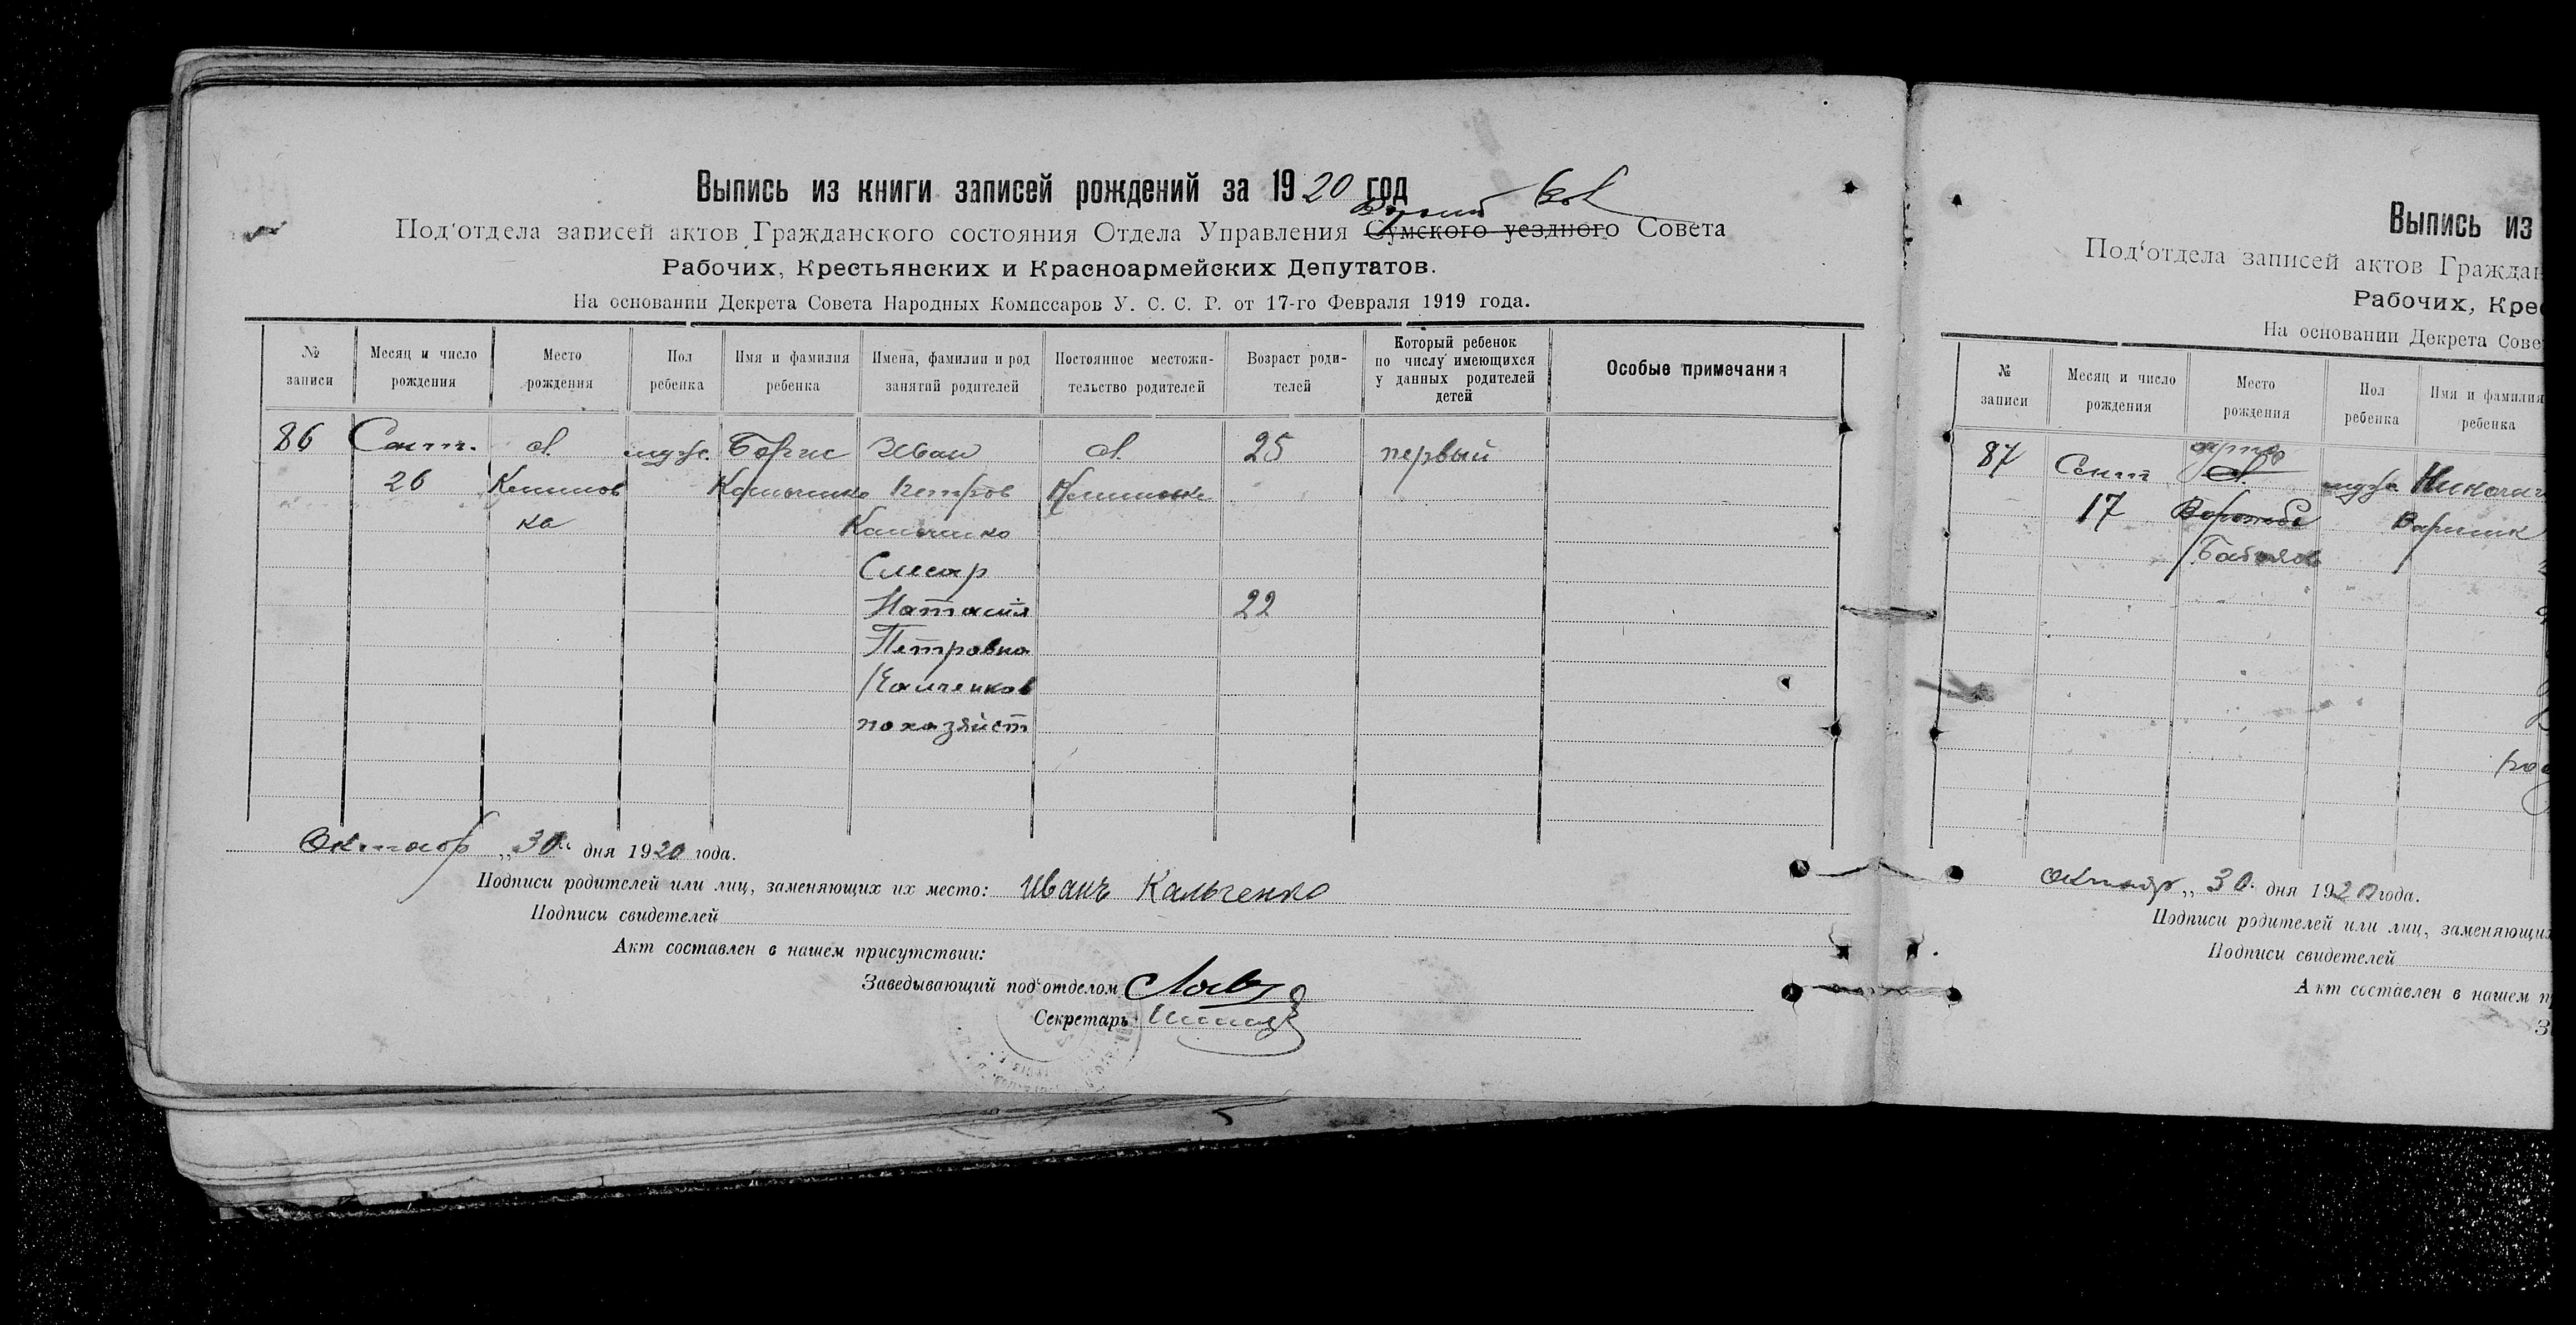 Выпись из книги записей рождений за 1920 год
Под'отдела записей актов Гражданского состояния Отдела Управления Сумского уездного Совета
Рабочих, Крестьянских и Красноармейских Депутатов.
На основании Декрета Совета Народных Комиссаров У. С. С. Р. от 17-го Февраля 1919 года.
№ записи
Месяц и число рождения
Место рождения
Пол ребенка
Имя и фамилия ребенка
Имена, фамилии и род занятий родителей
Постоянное местожительство родителей
Возраст родителей
Который ребенок по числу имеющихся у данных родителей детей
Особые примечания
86 Сент. муж. Борис Иван 25 первый
26 Петров
ка
Слесар
22
Петровна
по хазяйст
Октябр „30“ дня 1920 года.
Подписи родителей или лиц, заменяющих их место: Иванъ Кальченко
Подписи свидетелей
Акт составлен в нашем присутствии:
Заведывающий под'отделом
Секретарь
Выпись из
Под'отдела записей актов Граждан
Рабочих, Крес
На основании Декрета Сове
№ записи
Месяц и число рождения
Место рождения
Пол ребенка
Имя и фамилия ребенка
87 Сент муж
17
Октябр „30“ дня 1920 года.
Подписи родителей или лиц, заменяющи
Подписи свидетелей
Акт составлен в нашем п